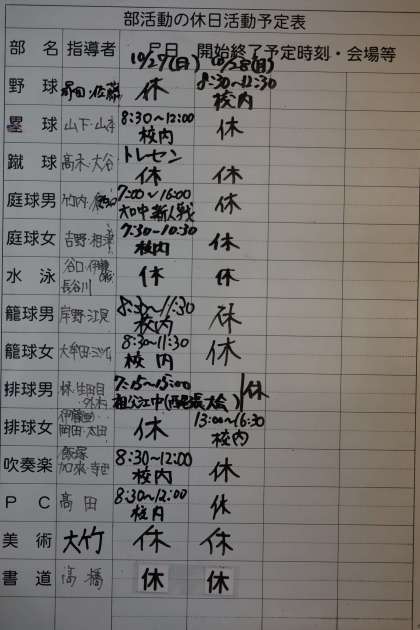 部活動の休日活動予定表
部 名 指導者 月日 開始終了予定時刻・会場等
10/27(日) 10/28(月)
野 球 佐藤 休 8:30~12:30
校内
塁 球 山下・山本 8:30~12:00 休
校内
蹴 球 高木・大谷 トレセン
休 休
庭球男 竹内・ 7:00~16:00 休
新人戦
庭球女 吉野・相津 7:30~10:30 休
校内
水 泳 谷口・伊藤 休 休
長谷川
籠球男 岸野・江 8:30~11:30 休
校内
籠球女 大牟田・三 8:30~11:30 休
校 内
排球男 林・生田目 7:15~15:00 休
・外木 祖父江中(西尾張大会)
排球女 伊藤 休 13:00~16:30
岡田・太田 校内
吹奏楽 飯塚 8:30~12:00 休
加來・寺西 校内
P C 高 田 8:30~12:00 休
校内
美 術 大竹 休 休
書 道 高 橋 休 休